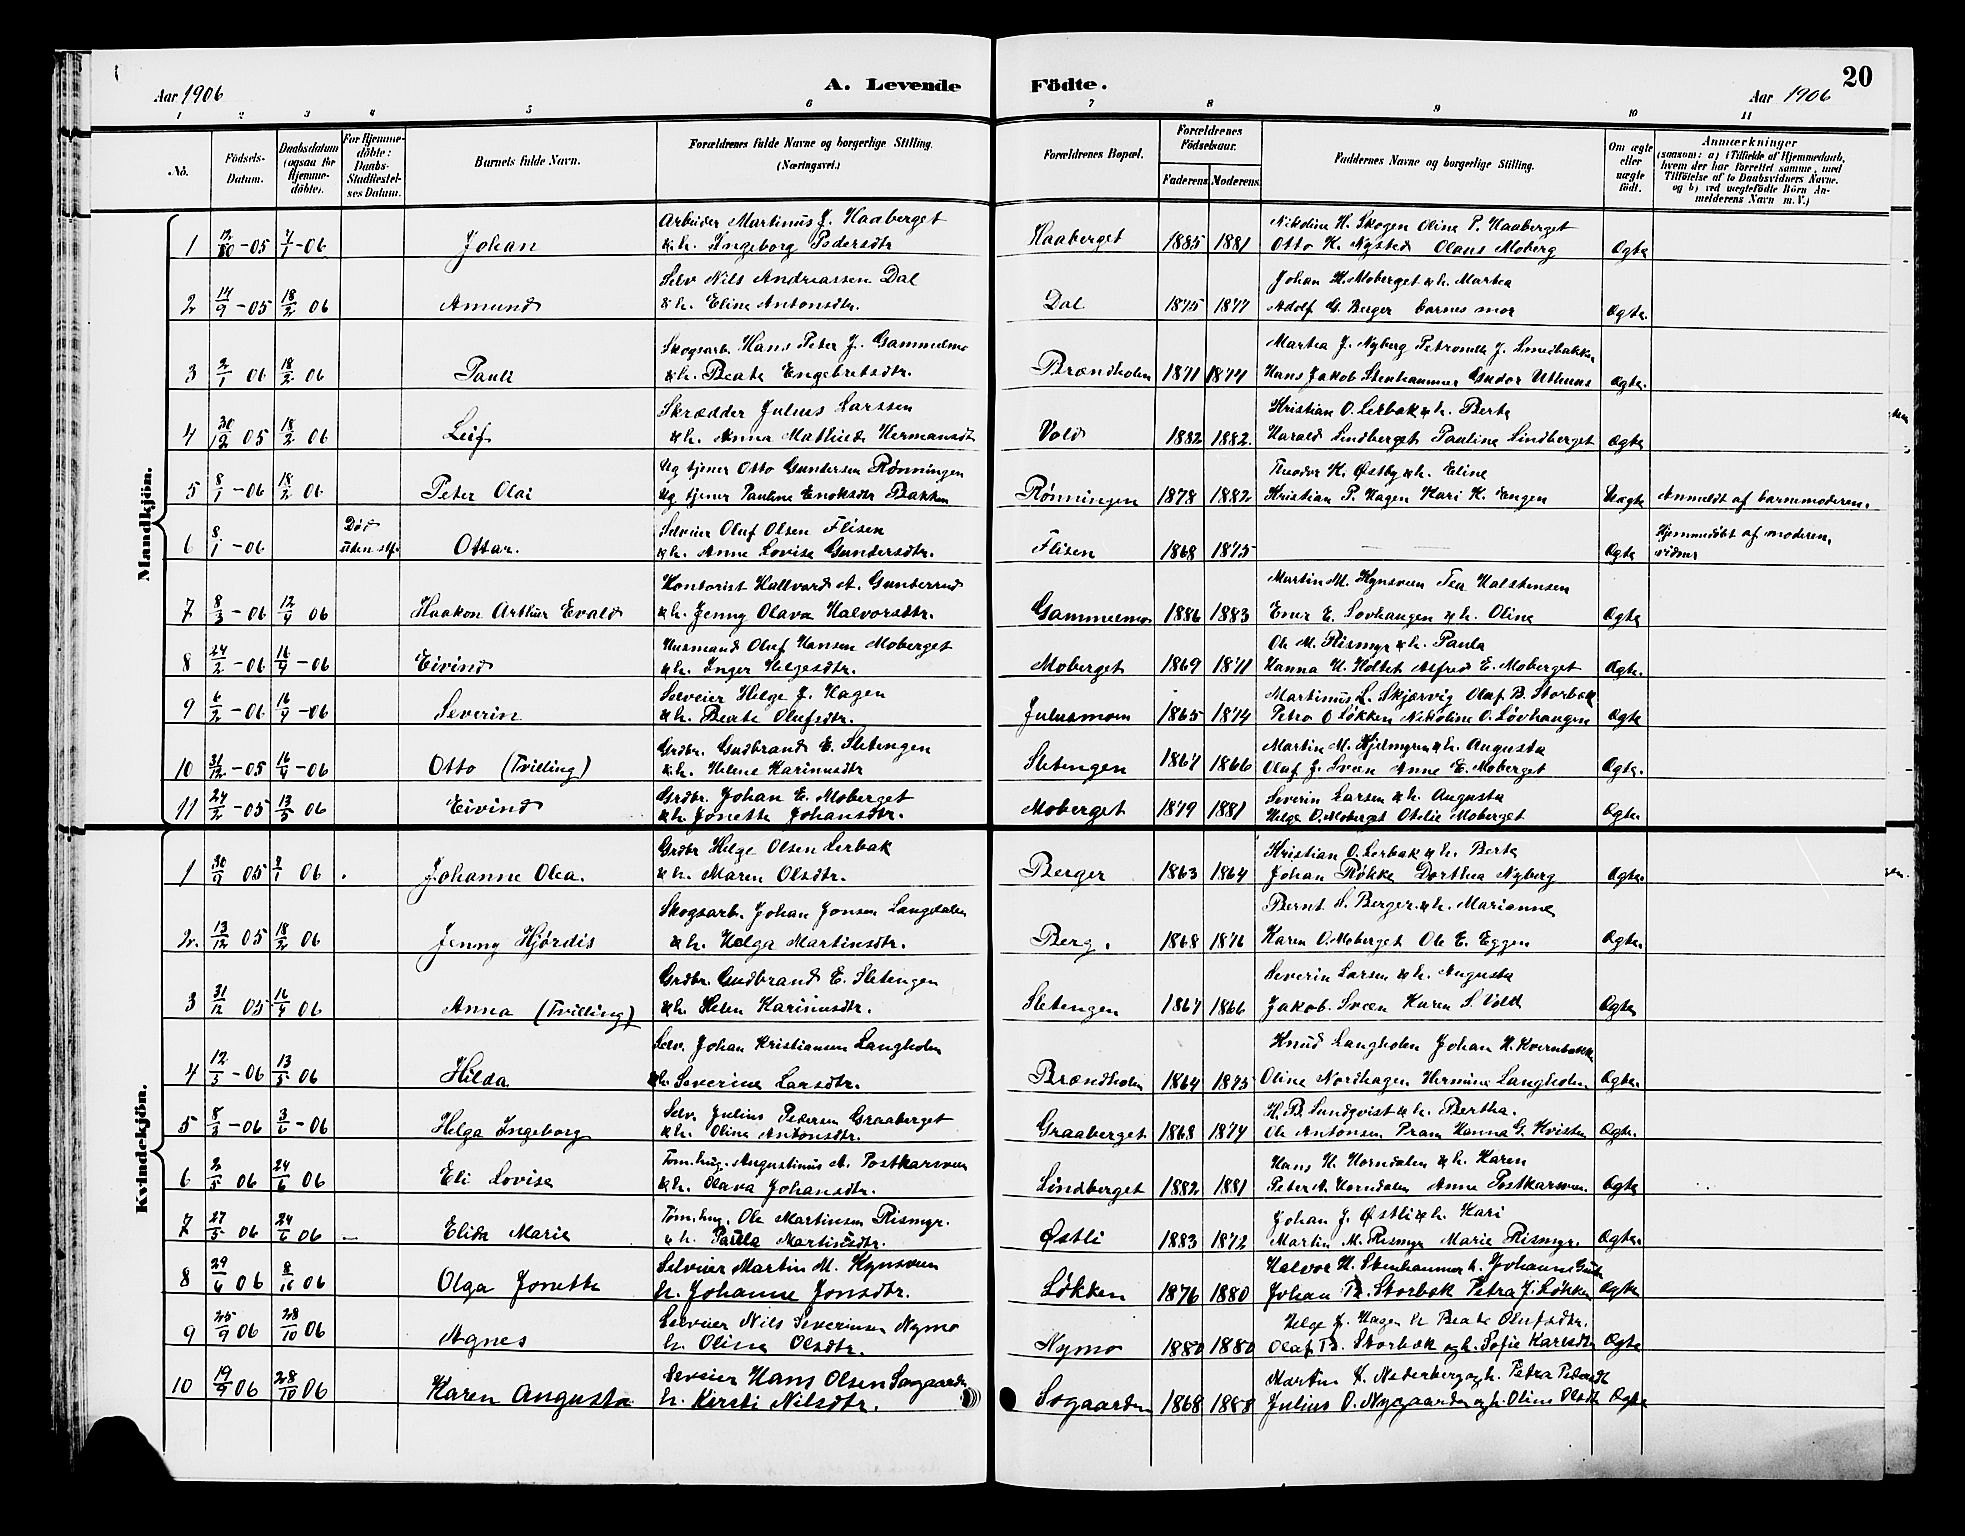 Aar 1906 A. Levende Födte. Aar 1906 20
1 2 3 4 5 6 7 8 9 10 11
No. Födsels-Datum. Daabsdatum (ogsaa for Hjemmedöbte). For Hjemmedöbte: Daabs-Stadfæstelses Datum. Barnets fulde Navn. Forældrenes fulde Navne og borgerlige Stilling. (Næringsvei.) Forældrenes Bopæl. Forældrenes Födselsaar. Faderens. Moderens. Faddernes Navne og borgerlige Stilling. Om ægte eller uægte födt. Anmærkninger (saasom: a) i Tilfælde af Hjemmedaab, hvem der har forrettet samme, med Tilföielse af to Daabsvidners Navne, og b) ved uægtefödte Börn Anmelderens Navn m. V.)
Mandkjön.
Arbeider Martinus J. Haaberget Nikoline H. Skogen Oline P. Haaberget
1 12/10-05 7/1-06 Johan &h. Ingeborg Pedersdtr Haaberget 1885 1881 Otto K. Nysted Olaus Moberg Ægte
Selv Nils Andreassen Dal Johan H. Moberget &h. Martea
2 14/9-05 18/2 06 Amund &h. Eline Antonsdtr. Dal 1875 1877 Adolf G. Berger barnes mor Ægte
Skogsarb. Hans Peter J. Gammelmo Martea J. Nyberg Petronelle J. Smedbakken
3 2/1 06 18/2 06 Pauli &h. Beate Engebretsdtr. Brændholen 1871 1874 Hans Jakob Stenhammer Gudor Uthuus Ægte.
Skrædder Julius Larssen Kristian O. Lerbak &h. Berte
4 30/12 05 18/2 06 Leif &h. Anna Mathilde Hermansdt Vold 1882 1882. Harald Lindberget Pauline Lindberget Ægte
Ug tjener Otto Gundersen Rønningen Theodor K. Østby &h. Eline
5 8/1-06 18/2 06 Peter Olai Ug tjener Pauline Enoksdtr Bakken Rønningen 1878 1882 Kristian P. Hagen Kari K. Engen Uægte Anmeldt af barnemoderen.
Død Selveier Oluf Olsen Flisen Hjemmedøbt af moderen,
6 8/1-06 uden stf. Ottar. &h. Anne Lovise Gundersdtr. Flisen 1868 1875 Ægte vidner
Kontorist Hallvard A. Gunderrud Martin M. Kynsveen Tea Halstensen
7 8/3-06 12/4 06 Haakon Arthur Evald &h. Jenny Olava Halvorsdtr. Gammelmo 1886 1883 Ener E. Lovhaugen &h. Oline Ægte
Husmand Oluf Hansen Moberget Ole M. Rismyr &h. Paula
8 24/2-06 16/4-06 Eivind &h. Inger Helgesdtr. Moberget 1869 1871 Hanna H. Holtet Alfred E. Moberget Ægte.
Selveier Helge J. Hagen Martinus L. Skjærvig Oluf B. Storbæk
9 6/2-06 16/4-06 Severin &h. Beate Olufsdtr. Julusmoen 1865 1874 Petra O Løkken Nikoline O. Løvhaugen Ægte
Grdbr. Gudbrand E. Sletengen Martin M. Hjelmyren &h. Augusta
10 31/12-05 16/4-06 Otto (Tvilling) &h. Helene Karinusdtr Sletengen 1867 1866 Oluf J. Sveen Anne E. Moberget Ægte.
Grdbr. Johan E. Moberget Severin Larsen &h. Augusta
11 24/2-05 13/5 06 Eivind &h. Jonette Johansdtr. Moberget 1879 1881 Helge O. Moberget Otelie Moberget Ægte.
Kvindekjön.
Grdbr Helge Olsen Lerbak Kristian O. Lerbak &h. Berte
1 30/9 05 7/1 06 Johanne Olea. &h. Maren Olsdtr. Berger 1863 1864 Johan Røkke Dorthea Nyberg Ægte.
Skogsarb. Johan Jonsen Langdalen Bernt S. Berger &h. Marianne
2. 13/12 05 18/2 06 Jenny Hjørdis &h. Helga Martinsdtr. Berg. 1868 1876 Karen O. Moberget Ole E. Eggen Ægte.
Grdbr. Gudbrand E. Sletengen Severin Larsen &h. Augusta
3 31/12 05 16/4 06 Anna (Tvilling) &h. Helen Karinusdtr. Sletengen 1867 1866 Jakob Sveen Karen S. Vold Ægte
Selv. Johan Kristiansen Langholen Knud Langholen Johan H. Kvernbakke
4 12/3-06 13/5 06 Hilda &h. Severine Larsdtr. Brændholen 1864 1875 Oline Nordhagen Hermine Langholen Ægte.
Selv. Julius Pedersen Graaberget H. B. Lundqvist &h. Bertha.
5 8/3-06 3/6-06 Helga Ingeborg &h. Oline Antonsdtr. Graaberget 1868 1874 Ole Antonsen Pram Hanna G. Kvisten Ægte.
Tøm.hug. Augustinus A. Postkarsveen Hans H. Horndalen &h. Karen
6 2/5 06 24/6 06 Eli Lovise &h. Olava Johansdtr. Lindberget 1882 1881 Peter A. Horndalen Anne Postkarsveen. Ægte
Tøm.hug. Ole Martinsen Rismyr. Johan J. Østli &h. Kari
7 27/5 06 24/6 06 Elida Marie &h. Paula Martinusdtr. Østli 1883 1872 Martin M. Rismyr Marie Rismyr. Ægte.
Selveier Martin M. Kynsveen Halvor H. Stenhammer h. Johanne
8 29/6 06 06 Olga Jonette h. Johanne Jonsdtr. Løkken 1876 1880 Johan B. Storbæk Petra J. Løkken Ægte
Selveier Nils Severinsen Nymo Helge J. Hagen h Beate Olufsdtr.
9 25/9 06 28/10 06 Agnes h. Oline Olsdtr. Nymo 1880 1880 Olaf B. Storbæk og h. Sofie Karlsdtr Ægte
Seveier Hans Olsen Sogaarden Martin K. Nederberg og h. Petra Pedersdt
10 19/9 06 28/10 06 Karen Augusta h. Kirsti Nilsdtr. Sogaarden 1868 1888 Julius O. Nygaarden og h. Oline Olsdtr Ægte